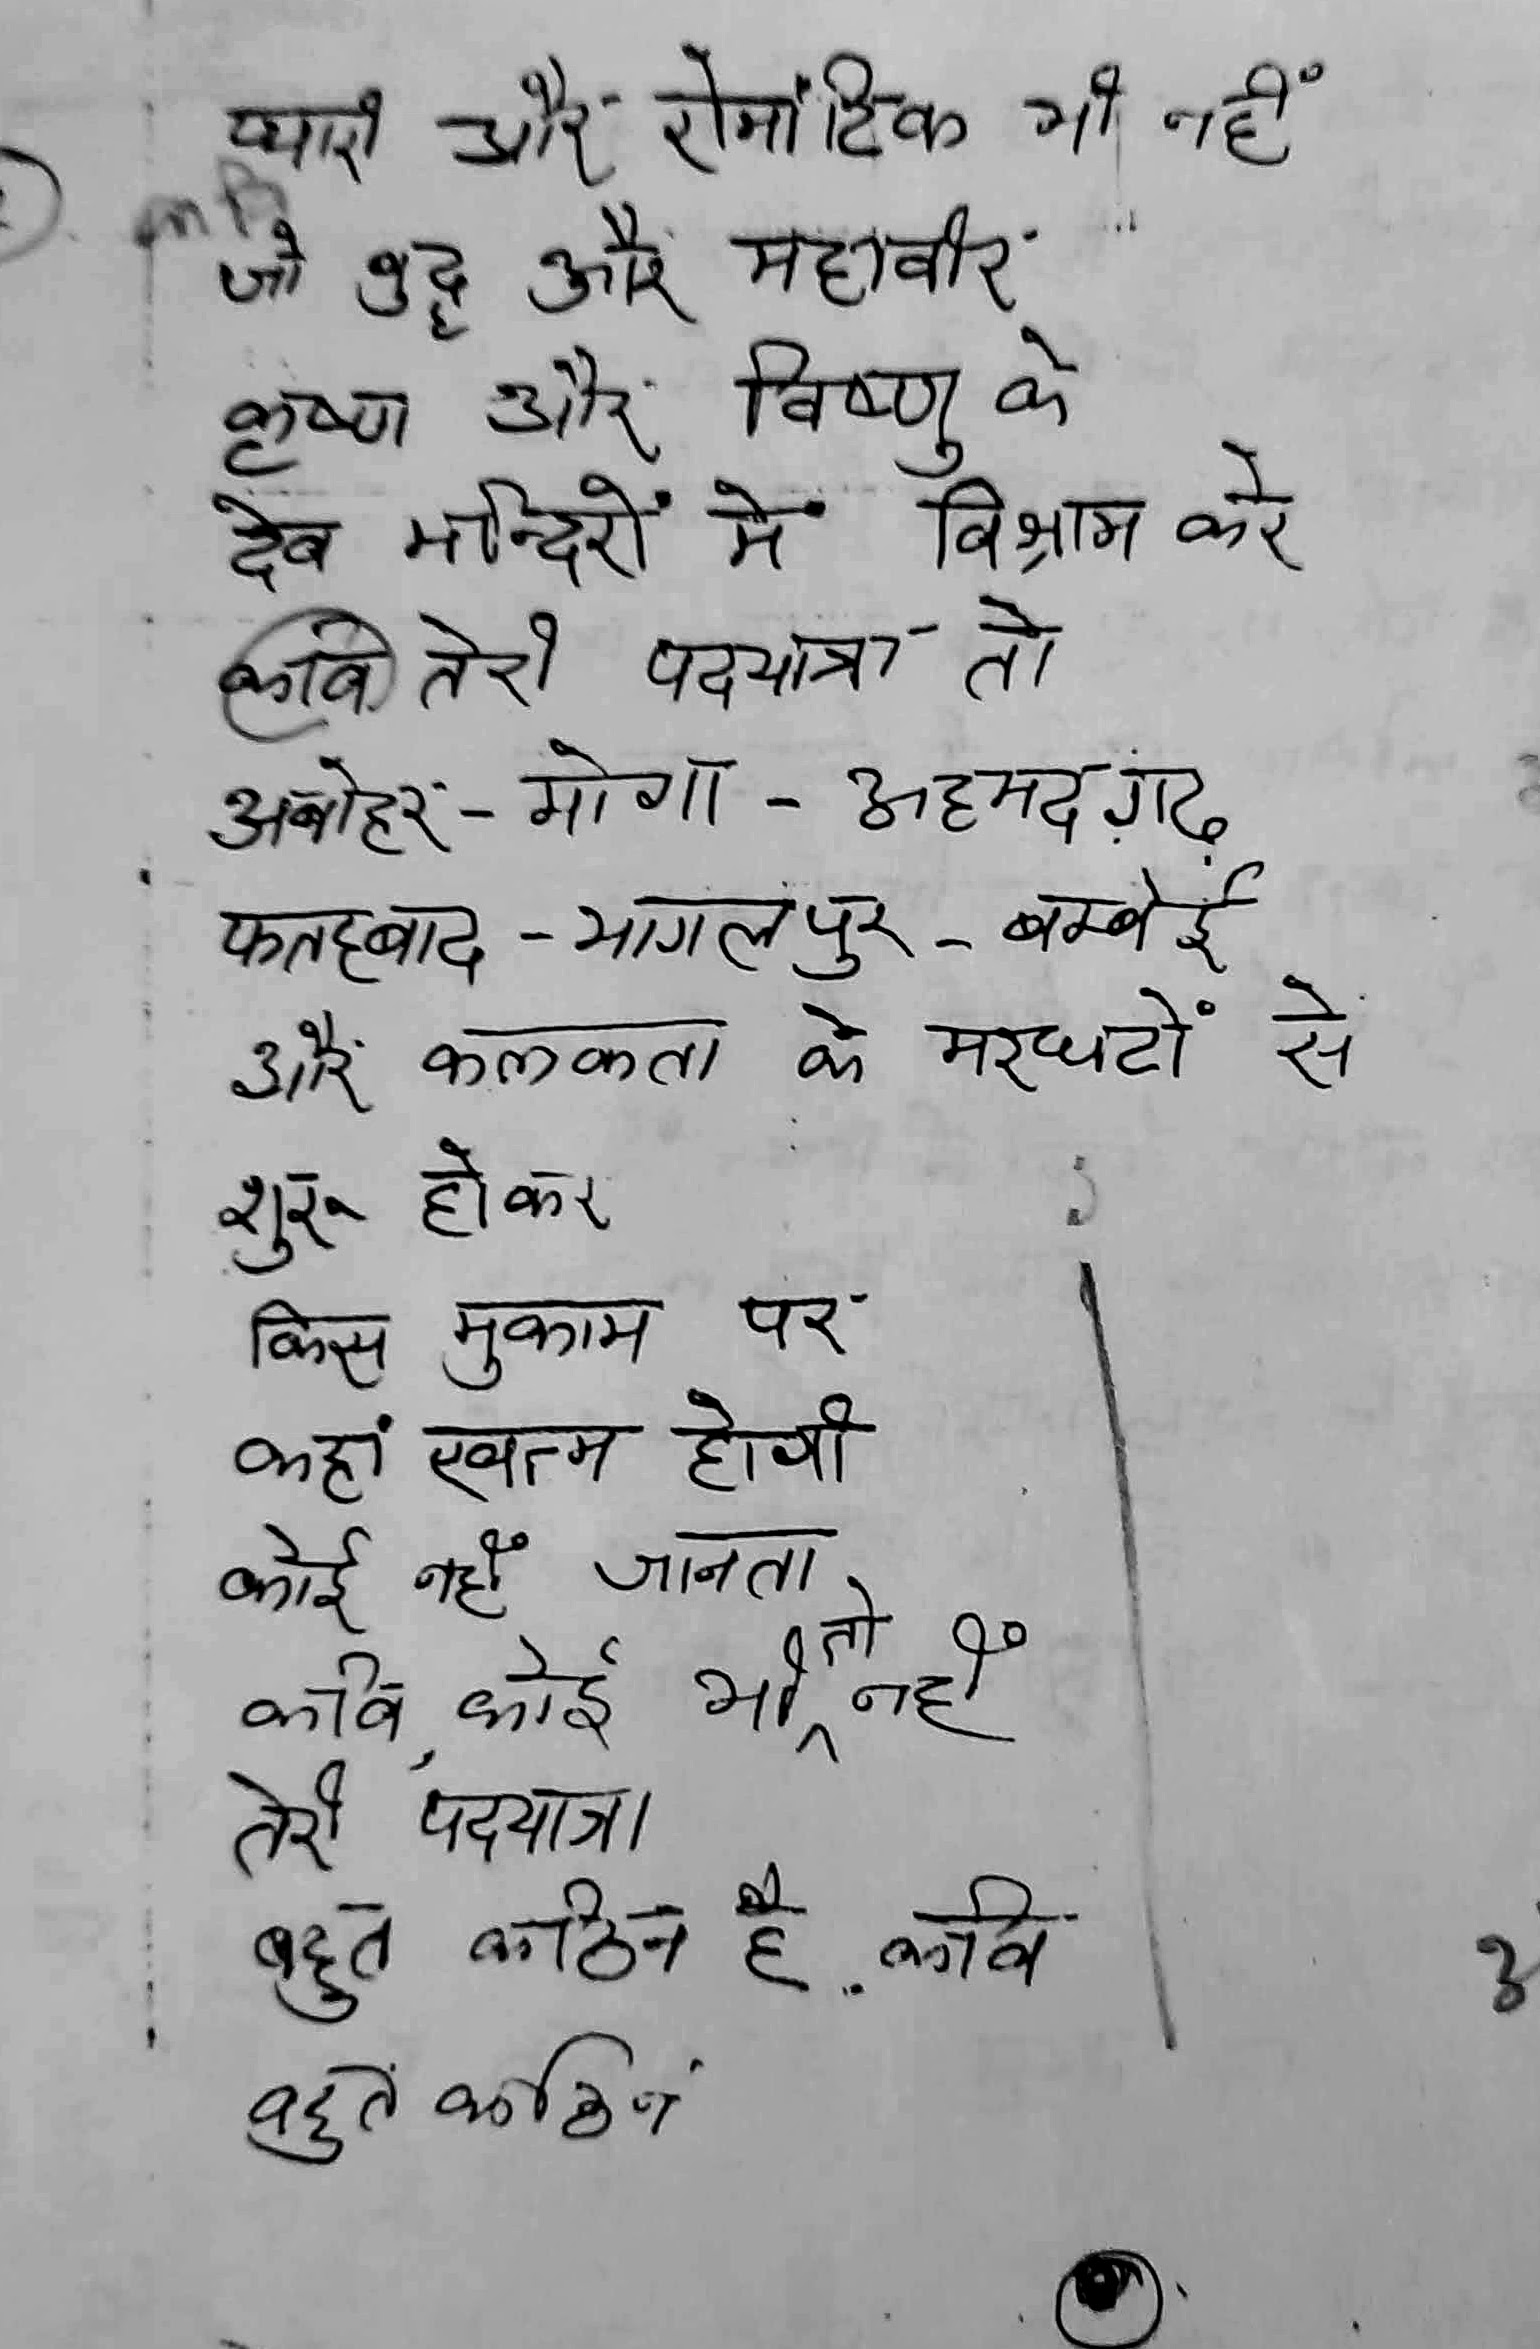 प्यारी और रोमांटिक भी नहीं
जो बुद्ध और महावीर
कृष्ण और विष्णु के
देव मन्दिरों में विश्राम करे
कवि तेरी पदयात्रा तो
अबोहर - मोगा - अहमदग़ढ़
फतहबाद - भागलपुर - बम्बई
और कलकता के मरघटों से
शुरू होकर
किस मुकाम पर
कहां खत्म होगी
कोई नहीं जानता
कवि, कोई भी तो नहीं
तेरी पदयात्रा
बहुत कठिन है कवि
बहुत कठिन